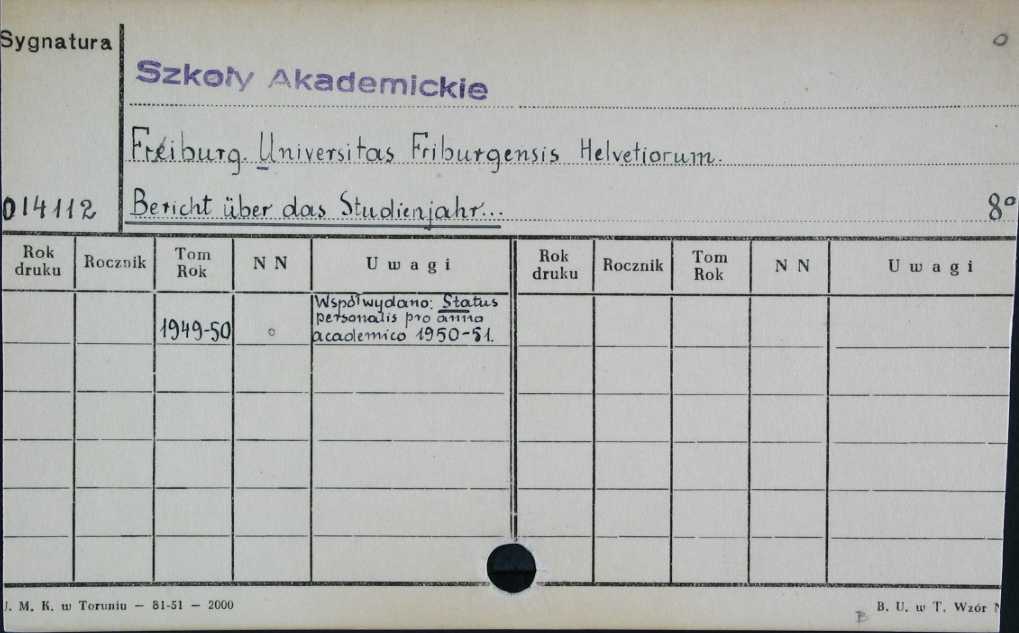 Sygnatura
Szkoły Akademickie
Freiburg. Universitas Friburgensis Helvetiorum.
014112 Bericht über das Studienjahr... 8°
Rok druku Rocznik Tom Rok N N Uwagi Rok druku Rocznik Tom Rok N N Uwagi
1949-50 ° Współwydano: Status
personalis pro anno
academico 1950-51.
J. M. K. w Toruniu — 81-51 — 2000
B. U. w T. Wzór
B